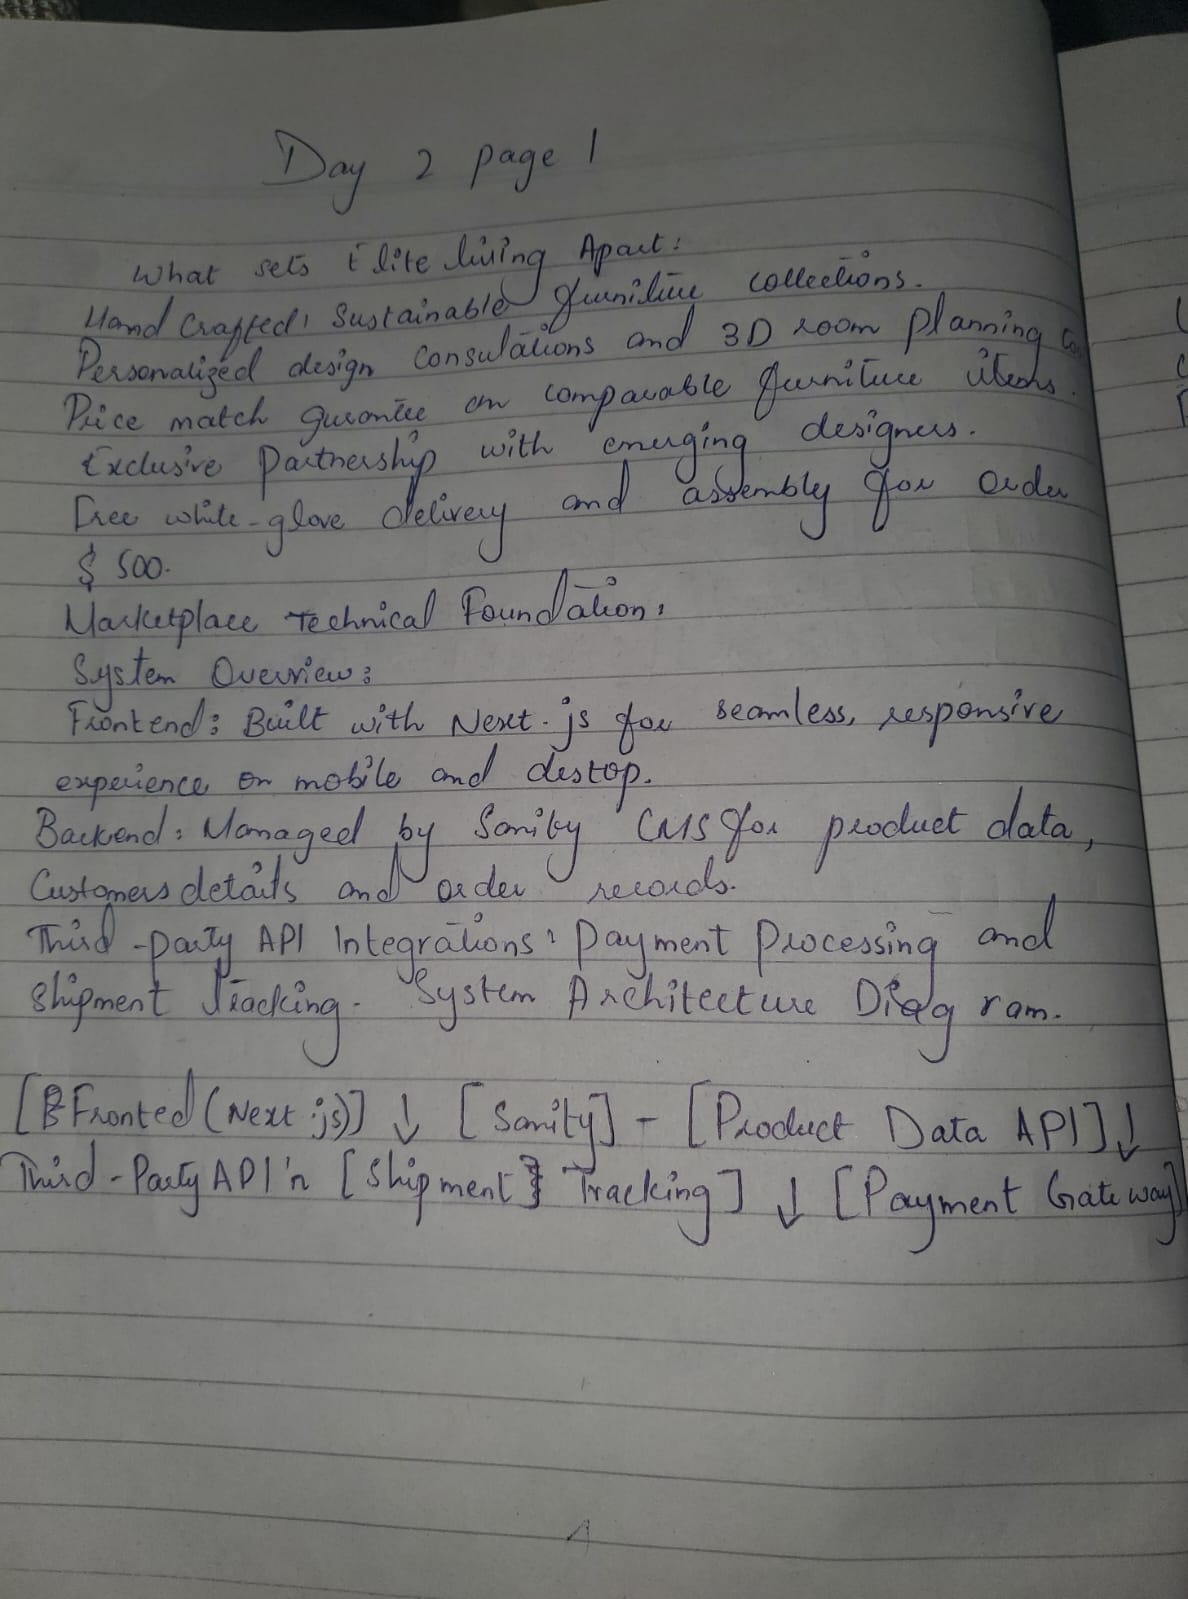 Day 2 page 1
What sets Elite living Apart:
Hand Crafted, Sustainable furniture collections.
Personalized design consulations and 3D room planning
Price match gurantee on comparable furniture items.
Exclusive Partnership with emerging designers.
Free white-glove delivery and assembly for order
$ 500.
Marketplace Technical Foundation:
System Overview:
Frontend: Built with Next.js for seamless, responsive
experience on mobile and destop.
Backend: Managed by Sanity CMS for product data,
Customers details and order records.
Third-party API Integrations: Payment Processing and
Shipment Tracking. System Architecture Diagram.
[Fronted (Next.js)] ↓ [Sanity] - [Product Data API] ↓
Third-Party API'n [Shipment Tracking] ↓ [Payment Gateway]